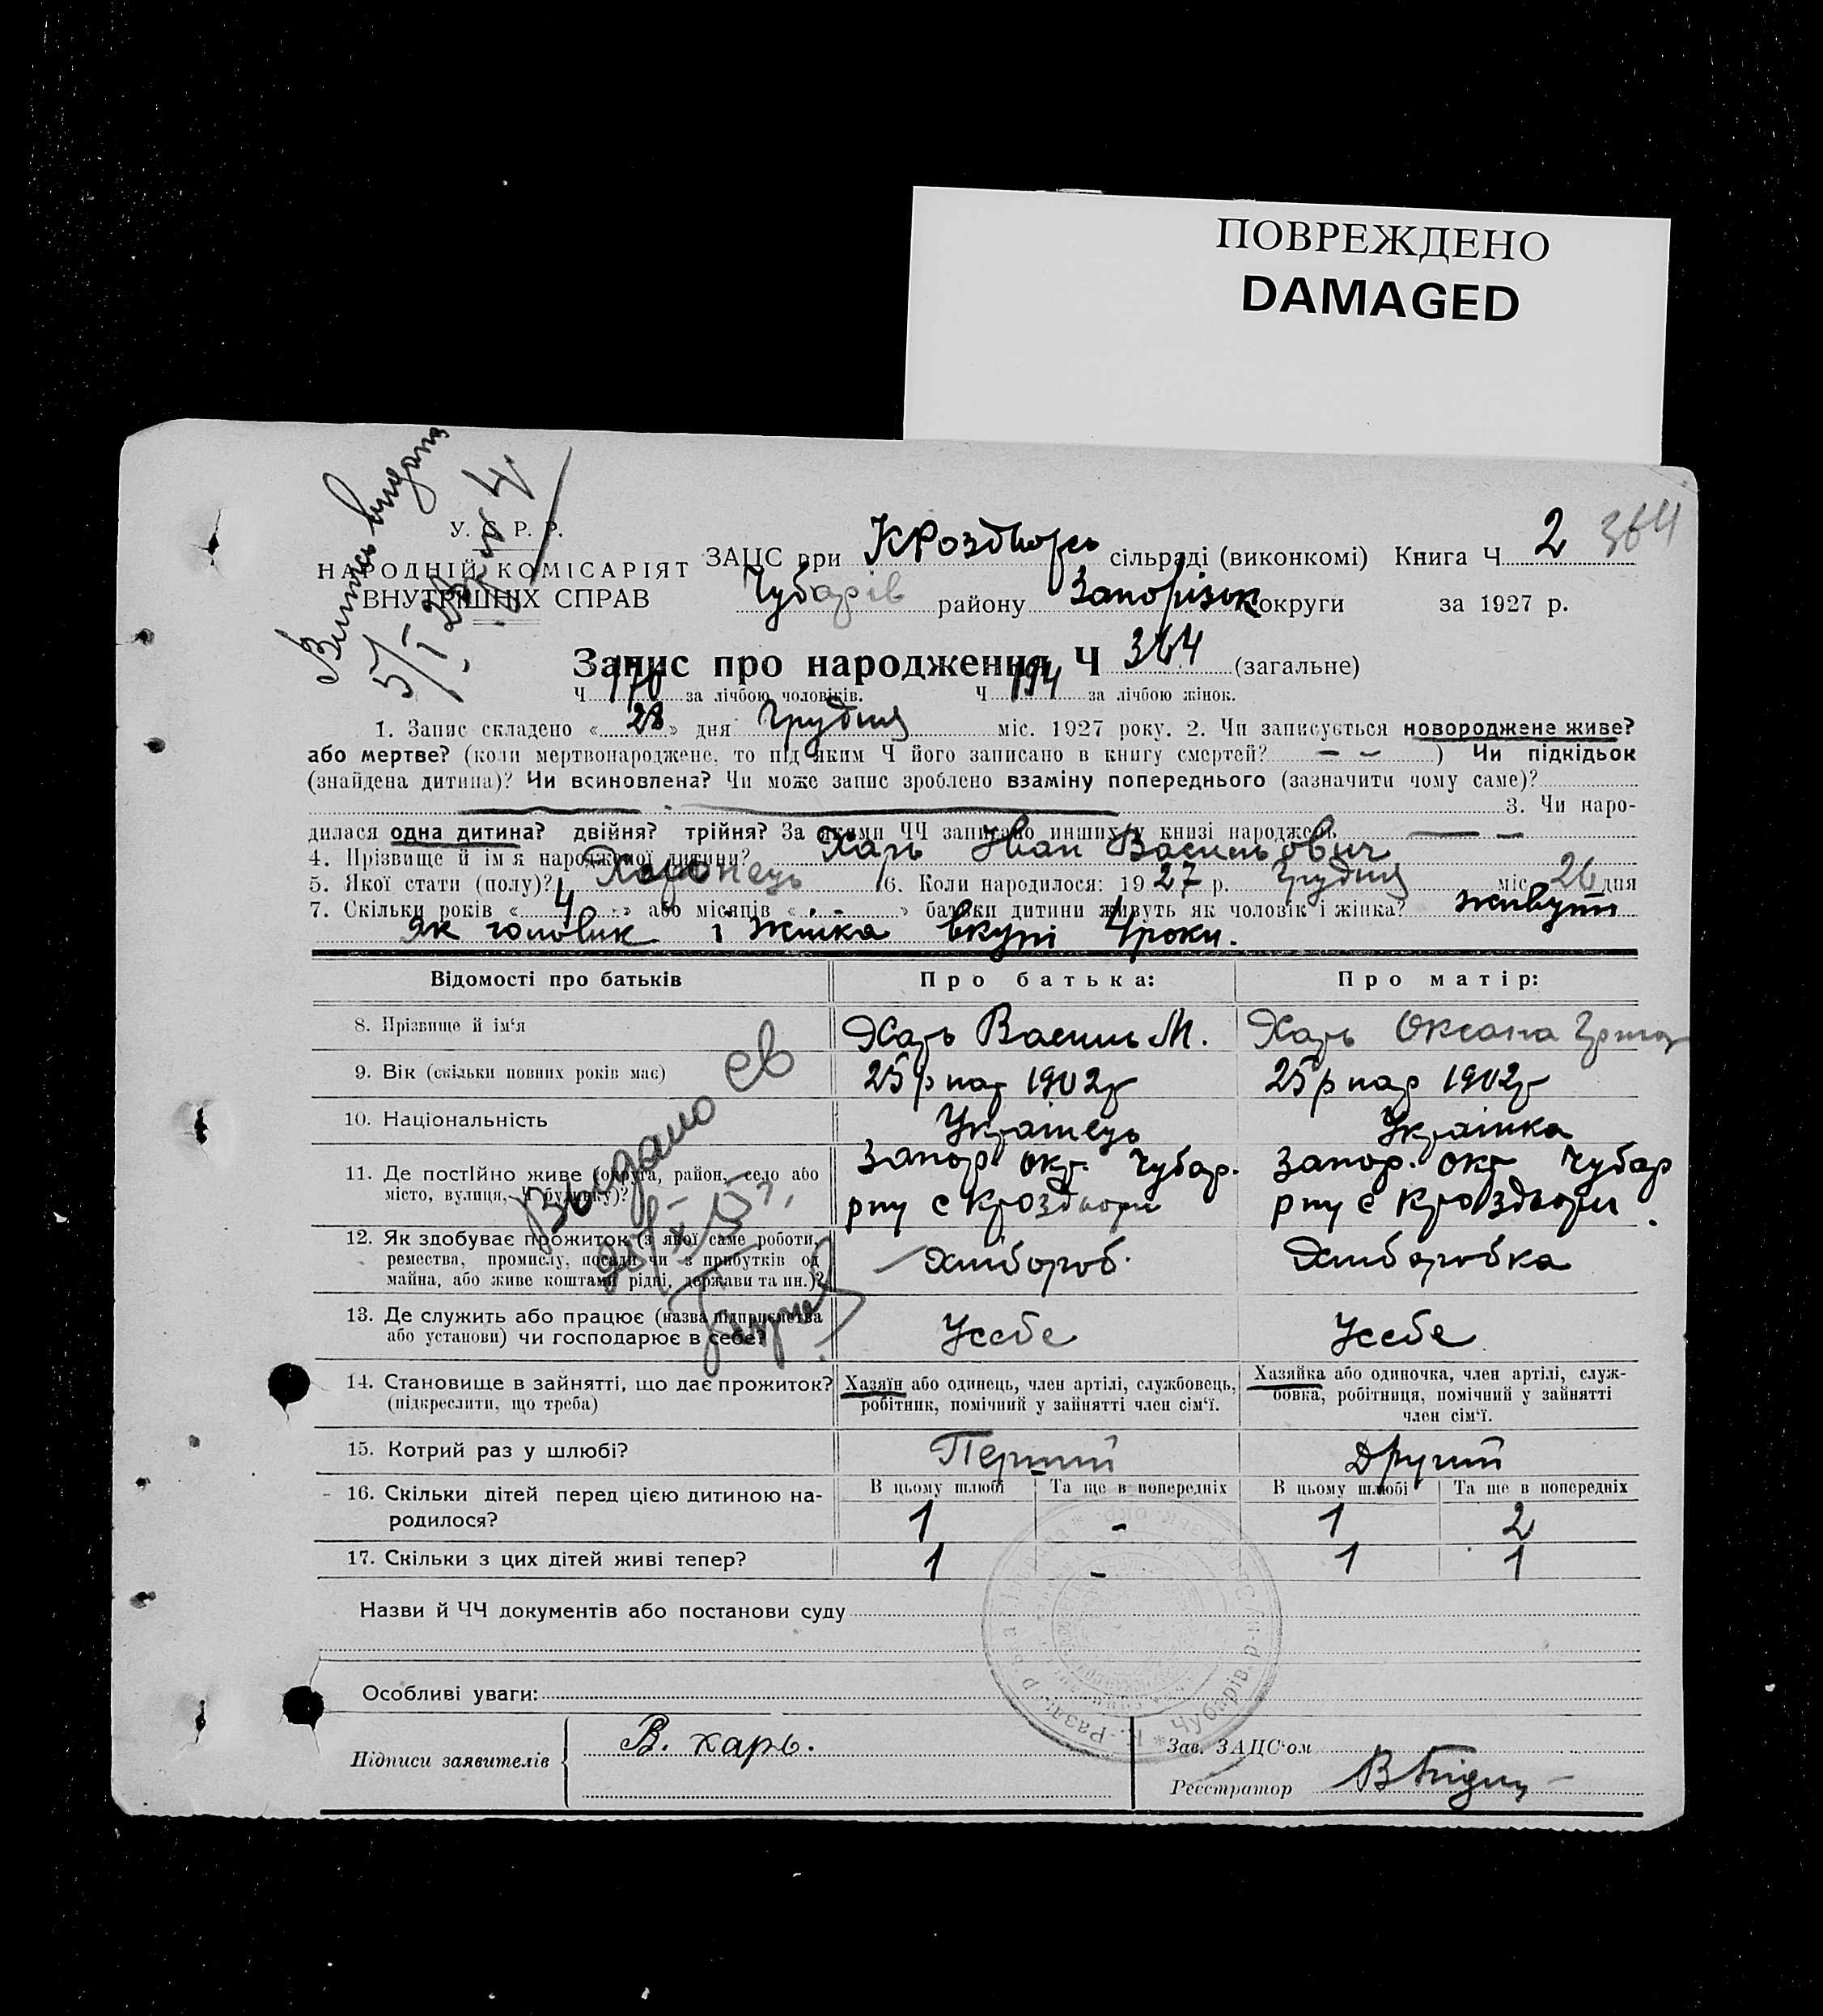 ПОВРЕЖДЕНО
DAMAGED
Випись видана
5/I 28 р. Ч.
У. С. Р. Р.
НАРОДНІЙ КОМІСАРІЯТ
ВНУТРІШНІХ СПРАВ
ЗАЦС при Кроздворс сільраді (виконкомі) Книга Ч 2 364
Чубарів району Запорізьк округи за 1927 р.
Запис про народження Ч 364 (загальне)
Ч 170 за лічбою чоловіків. Ч 194 за лічбою жінок.
1. Запис складено « 28 » дня Грудня міс. 1927 року. 2. Чи записується новороджене живе?
або мертве? (коли мертвонароджене, то під яким Ч його записано в книгу смертей? — — ) Чи підкідьок
(знайдена дитина)? Чи всиновлена? Чи може запис зроблено взаміну попереднього (зазначити чому саме)?
3. Чи наро-
дилася одна дитина? двійня? трійня? За якими ЧЧ записано инших у книзі народжень — —
4. Прізвище й ім'я народженої дитини? Харь Іван Васильович
5. Якої стати (полу)? Хлопець 6. Коли народилося: 1927 р. Грудня міс. 26 дня
7. Скільки років « 4 » або місяців « - » батьки дитини живуть як чоловік і жінка? живуть
як чоловик і жінка вкупі 4 роки.
Відомості про батьків Про батька: Про матір:
8. Прізвище й ім'я Харь Василь М. Харь Оксана Григор
9. Вік (скільки повних років має) 25 р нар 1902 р 25 р нар 1902 р
10. Національність Українець Українка
11. Де постійно живе (округа, район, село або Запор. окр. Чубар. Запор. окр Чубар
місто, вулиця, Ч будинку)? рну с Кроздвори рну с Кроздвори.
12. Як здобуває прожиток (з якої саме роботи, Хлібороб. Хліборобка
ремества, промислу, посади чи з прибутків од
майна, або живе коштами рідні, держави та ин.)?
13. Де служить або працює (назва підприємства Усебе Усебе
або установи) чи господарює в себе?
14. Становище в зайнятті, що дає прожиток? Хазяїн або одинець, член артілі, службовець, Хазяйка або одиночка, член артілі, служ-
(підкреслити, що треба) робітник, помічний у зайнятті член сім'ї. бовка, робітниця, помічний у зайнятті
член сім'ї.
15. Котрий раз у шлюбі? Перший Другий
16. Скільки дітей перед цією дитиною на- В цьому шлюбі Та ще в попередніх В цьому шлюбі Та ще в попередніх
родилося? 1 - 1 2
17. Скільки з цих дітей живі тепер? 1 - 1 1
Видано св
Назви й ЧЧ документів або постанови суду
Особливі уваги:
Підписи заявителів В. харь.
Зав. ЗАЦС'ом
Реєстратор